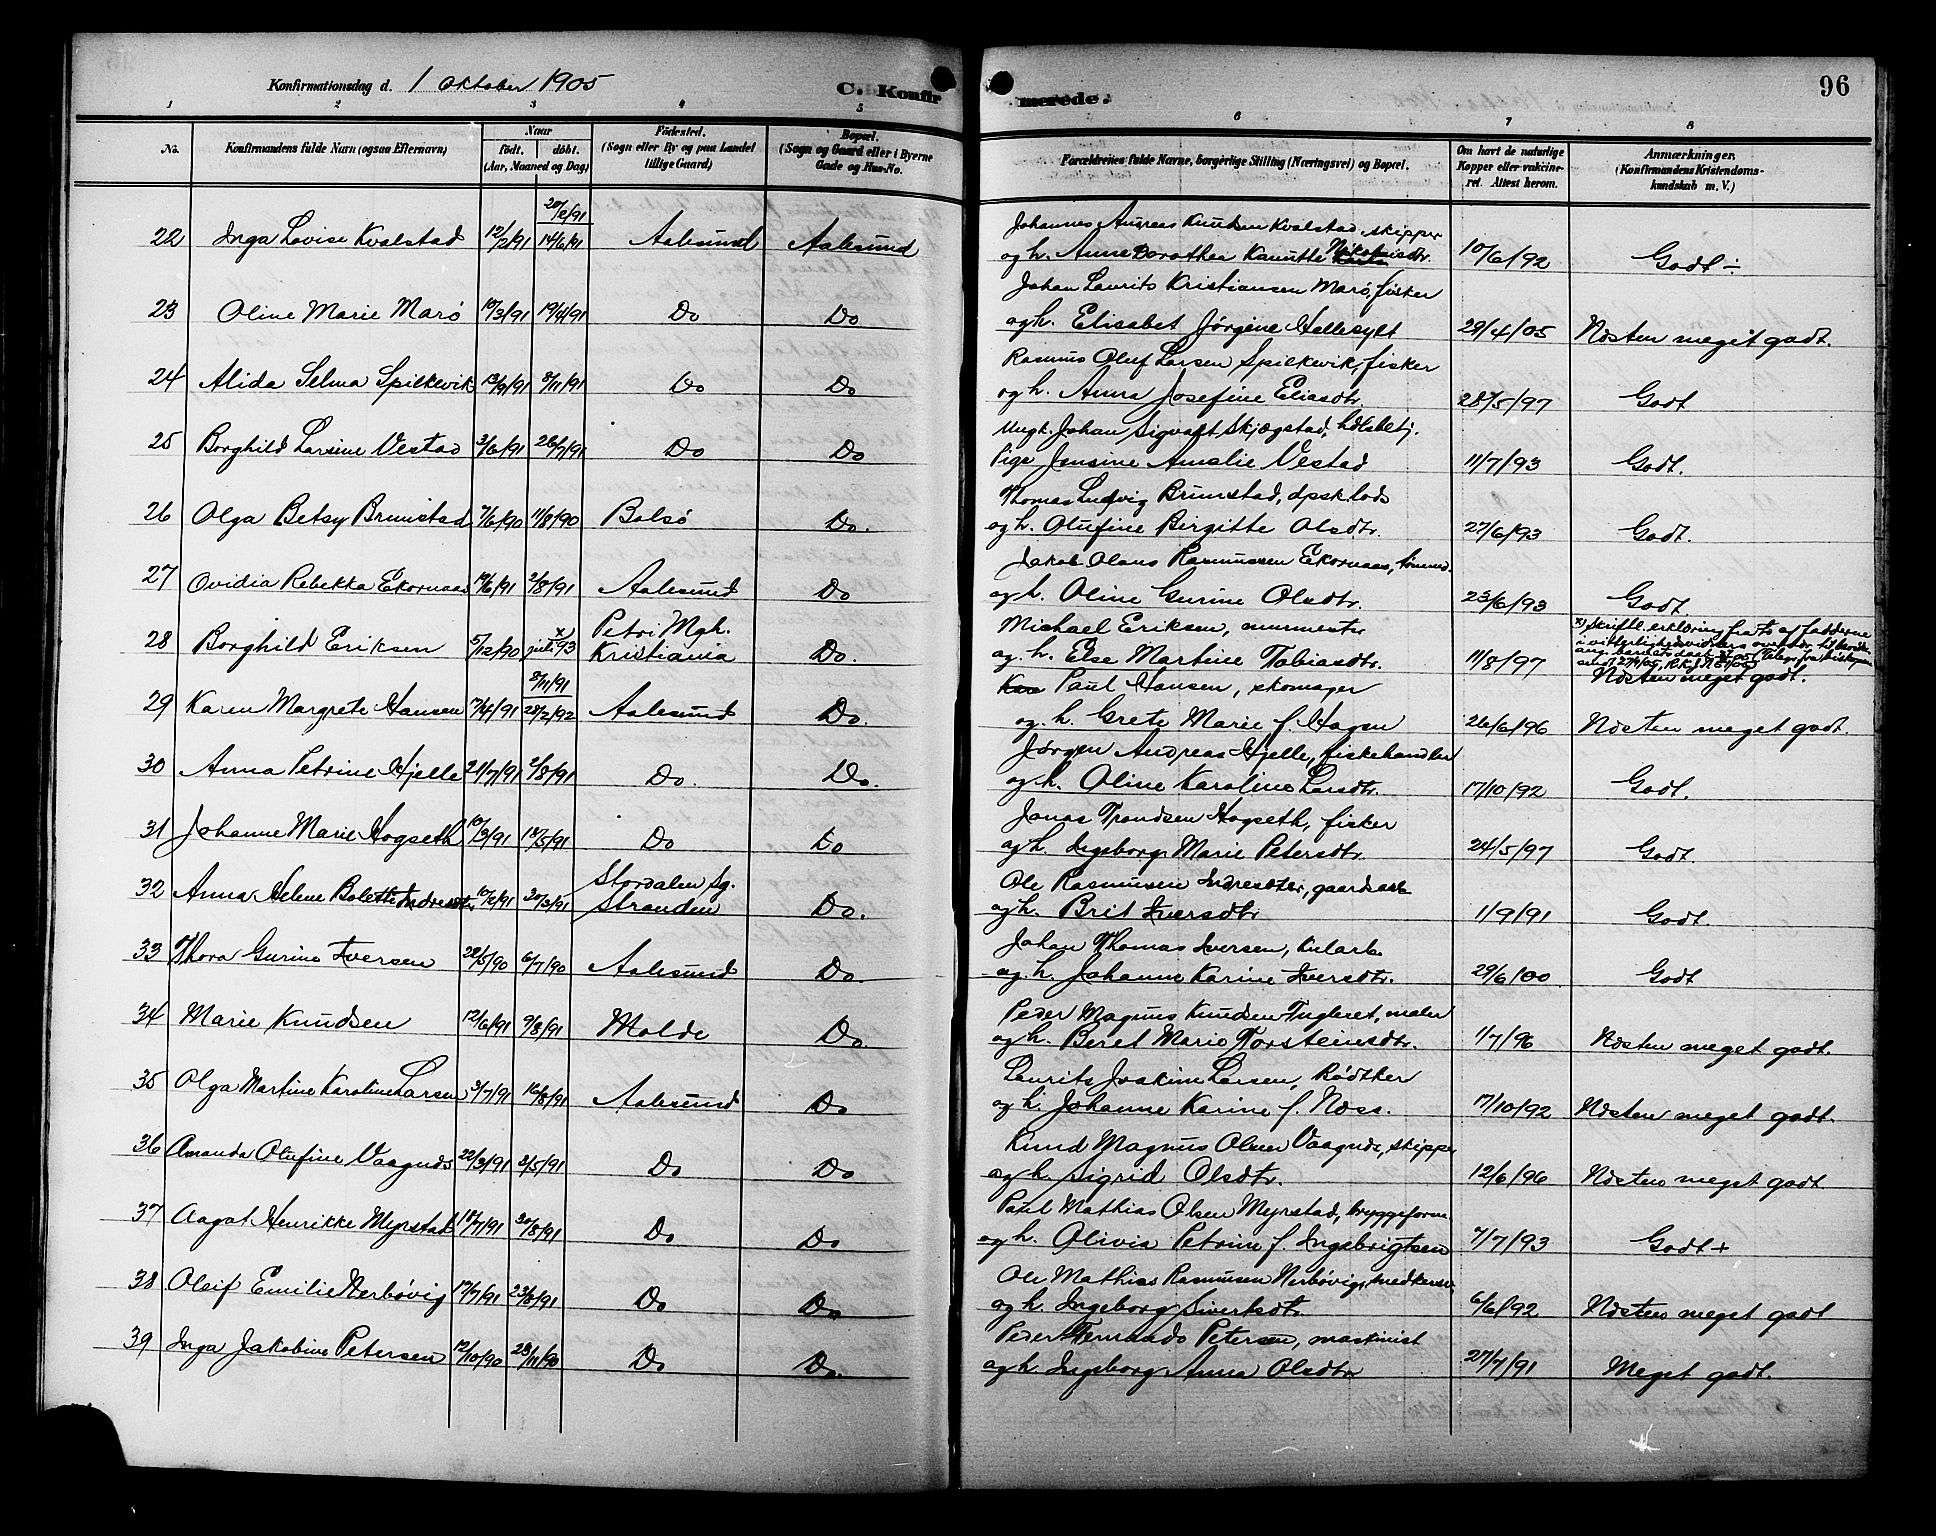 Konfirmationsdag d. 1 Oktober 1905
C. Konfirmerede.
96
1 2 3 4 5 6 7 8
No. Konfirmandens fulde Navn (ogsaa Efternavn) Naar født. døbt. (Aar, Maaned og Dag) Fødested. (Sogn eller By og paa Landet tillige Gaard) Bopæl. (Sogn og Gaard eller i Byerne Gade og Hus-No. Forældrenes fulde Navne, borgerlige Stilling (Næringsvei) og Bopæl. Om havt de naturlige Kopper eller vakcineret. Attest herom. Anmærkninger. (Konfirmandens Kristendomskundskab m. V.)
20/2/91 Johannes Andreas Knudsen Kvalstad, skipper
22 Inga Lovise Kvalstad 12/2/91 14/6/91 Aalesund Aalesund og h. Anne Dorothea Kanutte Nikolaisdtr. 10/6/92 Godt ÷
Johan Laurits Kristiansen Marø, fisker
23 Oline Marie Marø 10/3/91 19/4/91 Do Do og h. Elisabet Jørgine Hellesylt 29/4/05 Næsten meget godt.
Rasmus Oluf Larsen Spilkevik, fisker
24 Alida Selma Spilkevik 13/9/91 8/11/91 Do Do og h. Anna Josefine Eliasdtr. 28/5/97 Godt
Ungk. Johan Sigvalt Skjegstad, hdlsbetj.
25 Borghild Larsine Vestad 3/6/91 26/7/91 Do Do Pige Jensine Amalie Vestad 11/7/93 Godt.
Thomas Ludvig Brunstad, dpsk.lods
26 Olga Betsy Brunstad 7/6/90 11/8/90 Bolsø Do. og h. Olufine Birgitte Olsdtr. 27/6/93 Godt.
Jakob Olaus Rasmussen Ekornaas, tømmd.
27 Ovidia Rebekka Ekornaas 19/6/91 2/8/91 Aalesund Do og h. Oline Gurine Olsdtr. 23/6/93 Godt
Petri Mgh. Michael Eriksen, murmester x) Skriftl. erklæring fra to af fadderne
28 Borghild Eriksen 5/12/90 x juli 93 Kristiania Do. og h. Else Martine Tobiasdtr. 11/8/97 Næsten meget godt.
8/11/91 Paul Hansen, skomager
29 Karen Margrete Hansen 17/4/91 28/2/92 Aalesund Do. og h. Grete Marie f. Hagen 26/6/96 Næsten meget godt.
Jørgen Andreas Hjelle, fiskehandler
30 Anna Petrine Hjelle 21/7/91 2/8/91 Do. Do. og h. Oline Karoline Larsdtr. 17/10/92 Godt.
Jonas Trondsen Hogseth, fisker
31 Johanne Marie Hogseth 10/3/91 18/5/91 Do Do og h. Ingeborg Marie Petersdtr. 24/5/97 Godt.
Stordalen Sg. Ole Rasmusen Indresæter, gaardsarb.
32 Anna Helene Bolette Indresætr 10/2/91 30/3/91 Stranden Do. og h. Brit Iversdtr 1/9/91 Godt.
Johan Thomas Iversen, kularb.
33 Thora Gurine Iversen 28/5/90 6/7/90 Aalesund Do og h. Johanne Karine Iversdtr. 29/6/00 Godt
Peder Magnus Knudsen Fugleset, maler
34 Marie Knudsen 12/6/91 9/8/91 Molde Do. og h. Beret Marie Torsteinsdtr. 1/7/96 Næsten meget godt.
Laurits Joakim Larsen, Bødtker
35 Olga Martine Karoline Larsen 3/7/91 16/8/91 Aalesund Do og h. Johanne Karine f. Næss. 17/10/92 Næsten meget godt.
Knud Magnus Olsen Vaagnæs, skipper
36 Amanda Olufine Vaagnæs 22/3/91 3/5/91 Do Do og h. Sigrid Olsdtr. 12/6/96 Næsten meget godt
Paul Mathias Olsen Myrstad, bryggeform.
37 Aagot Henrikke Myrstad 18/7/91 30/8/91 Do Do og h. Olivia Petrine f. Ingebrigtsen 7/7/93 Godt +
Ole Mathias Rasmusen Nerbøvig,
38 Oleif Emilie Nerbøvig 17/7/91 23/8/91 Do Do og h. Ingeborg Sivertsdtr. 6/6/92 Næsten meget godt
Peder Fernando Petersen, maskinist
39 Inga Jakobine Petersen 12/10/90 23/11/90 Do Do. og h. Ingeborg Anna Olsdtr 27/7/91 Meget godt.